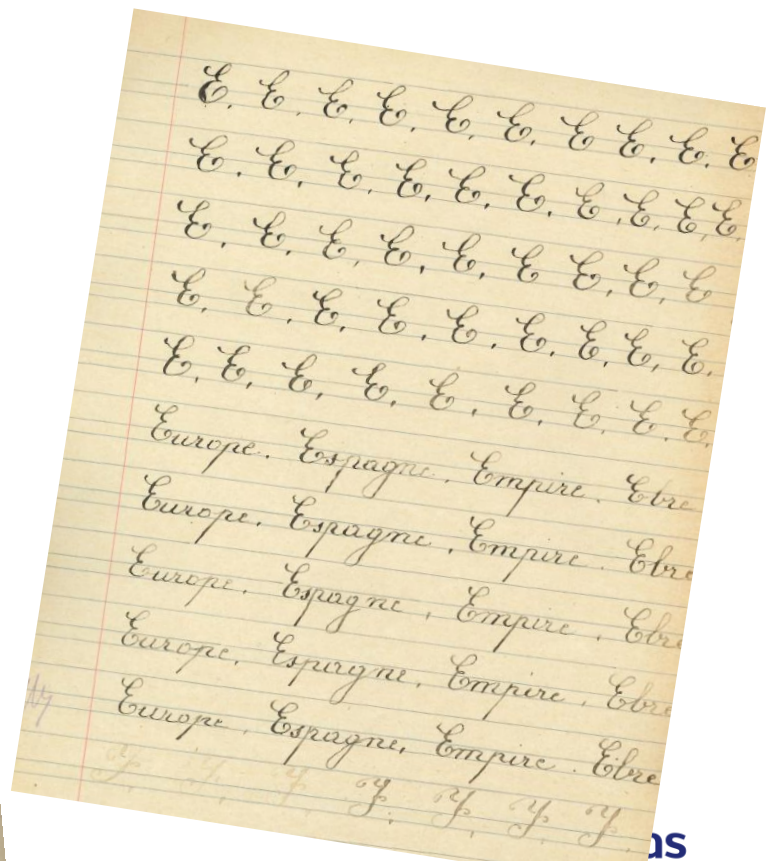 E. E. E. E. E. E. E E. E. E
E. E. E. E. E. E. E. E. E. E.
E. E. E. E. E. E E. E. E
E. E. E. E. E. E. E. E. E.
E. E. E. E. E. E. E. E. E.
Europe. Espagne. Empire. Ebre
Europe. Espagne. Empire. Ebre
Europe. Espagne. Empire. Ebre
Europe. Espagne. Empire. Ebre
Europe. Espagne. Empire. Ebre
Y. Y. Y Y. Y. Y. Y.
as